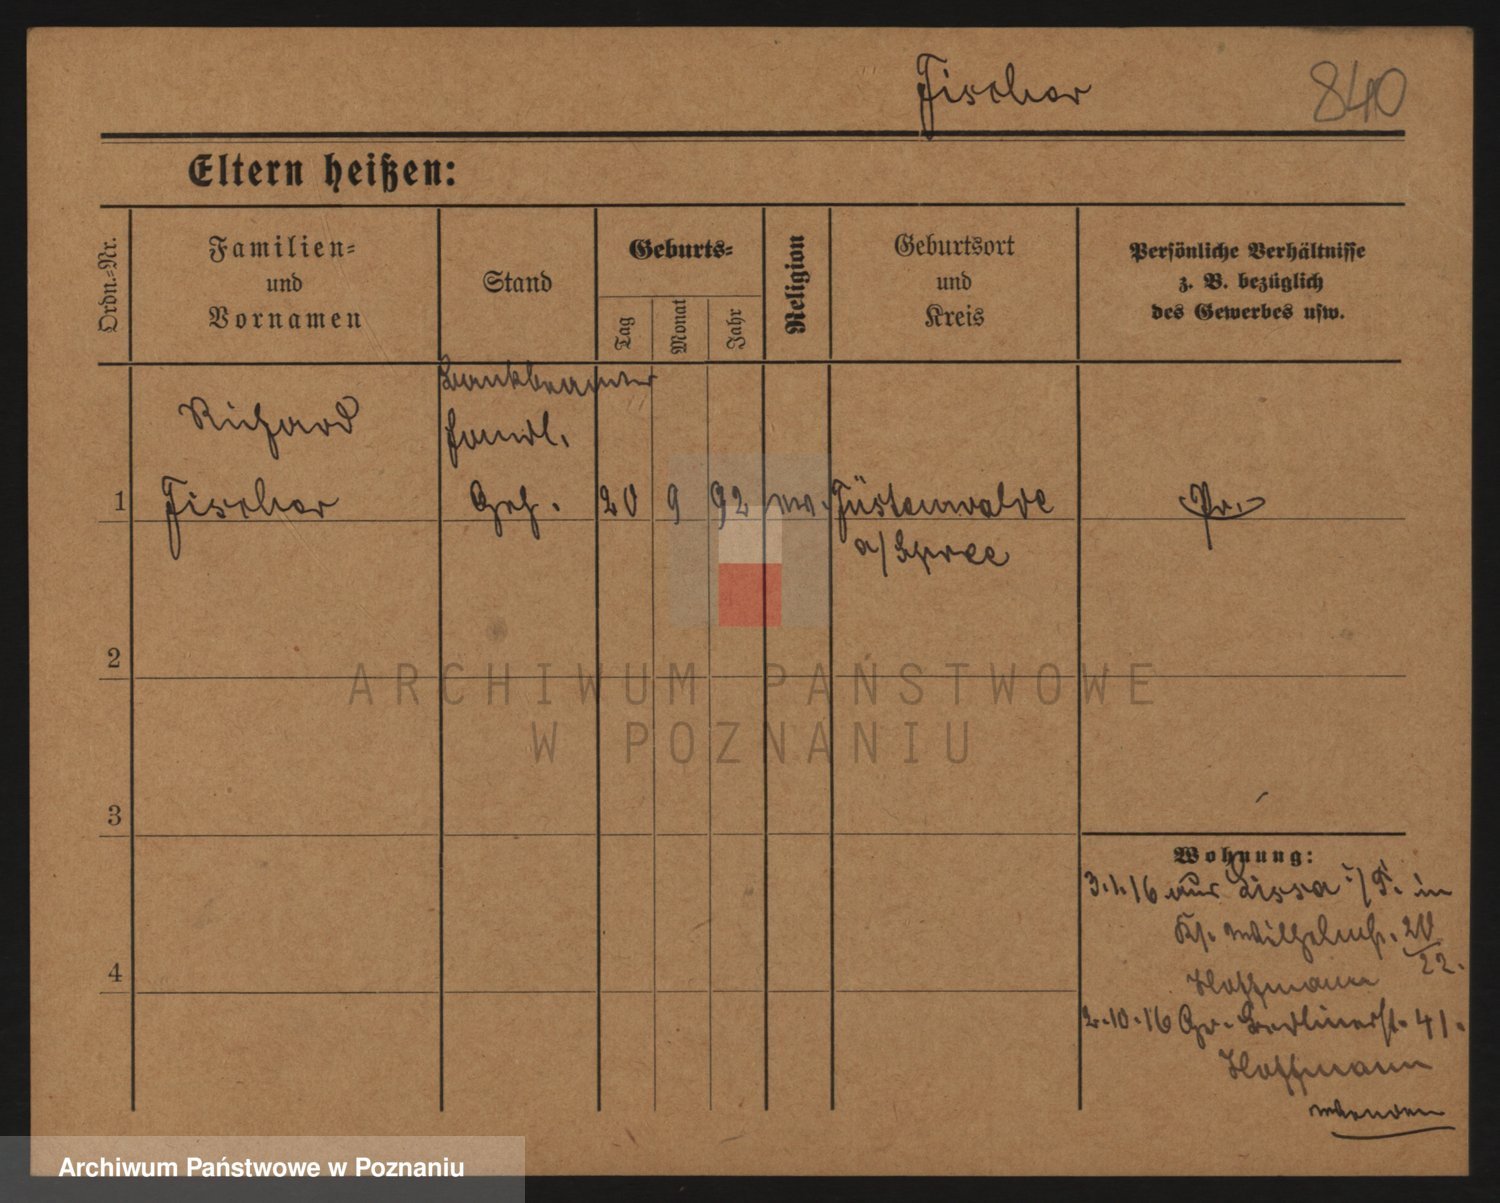 Fischer
840
Eltern heißen:
Ordn.=Nr.
Familien=
und
Vornamen
Stand
Geburts=
Tag
Monat
Jahr
Religion
Geburtsort
und
Kreis
Persönliche Verhältnisse
z. B. bezüglich
des Gewerbes usw.
Bankbeamter
Richard
Handl.
1
Fischer
Geh.
20
9
92
Füstenwalde
Pr.
a/Spree
2
ARCHIWUM PAŃSTWOWE
W POZNANIU
3
Wohnung:
3.1.16 aus Lissa i/P. in
Wilhelmst. 20/22.
4
Hoffmann
2.10.16 Gr. Berlinerst. 41.
Hoffmann
wenden
Archiwum Państwowe w Poznaniu